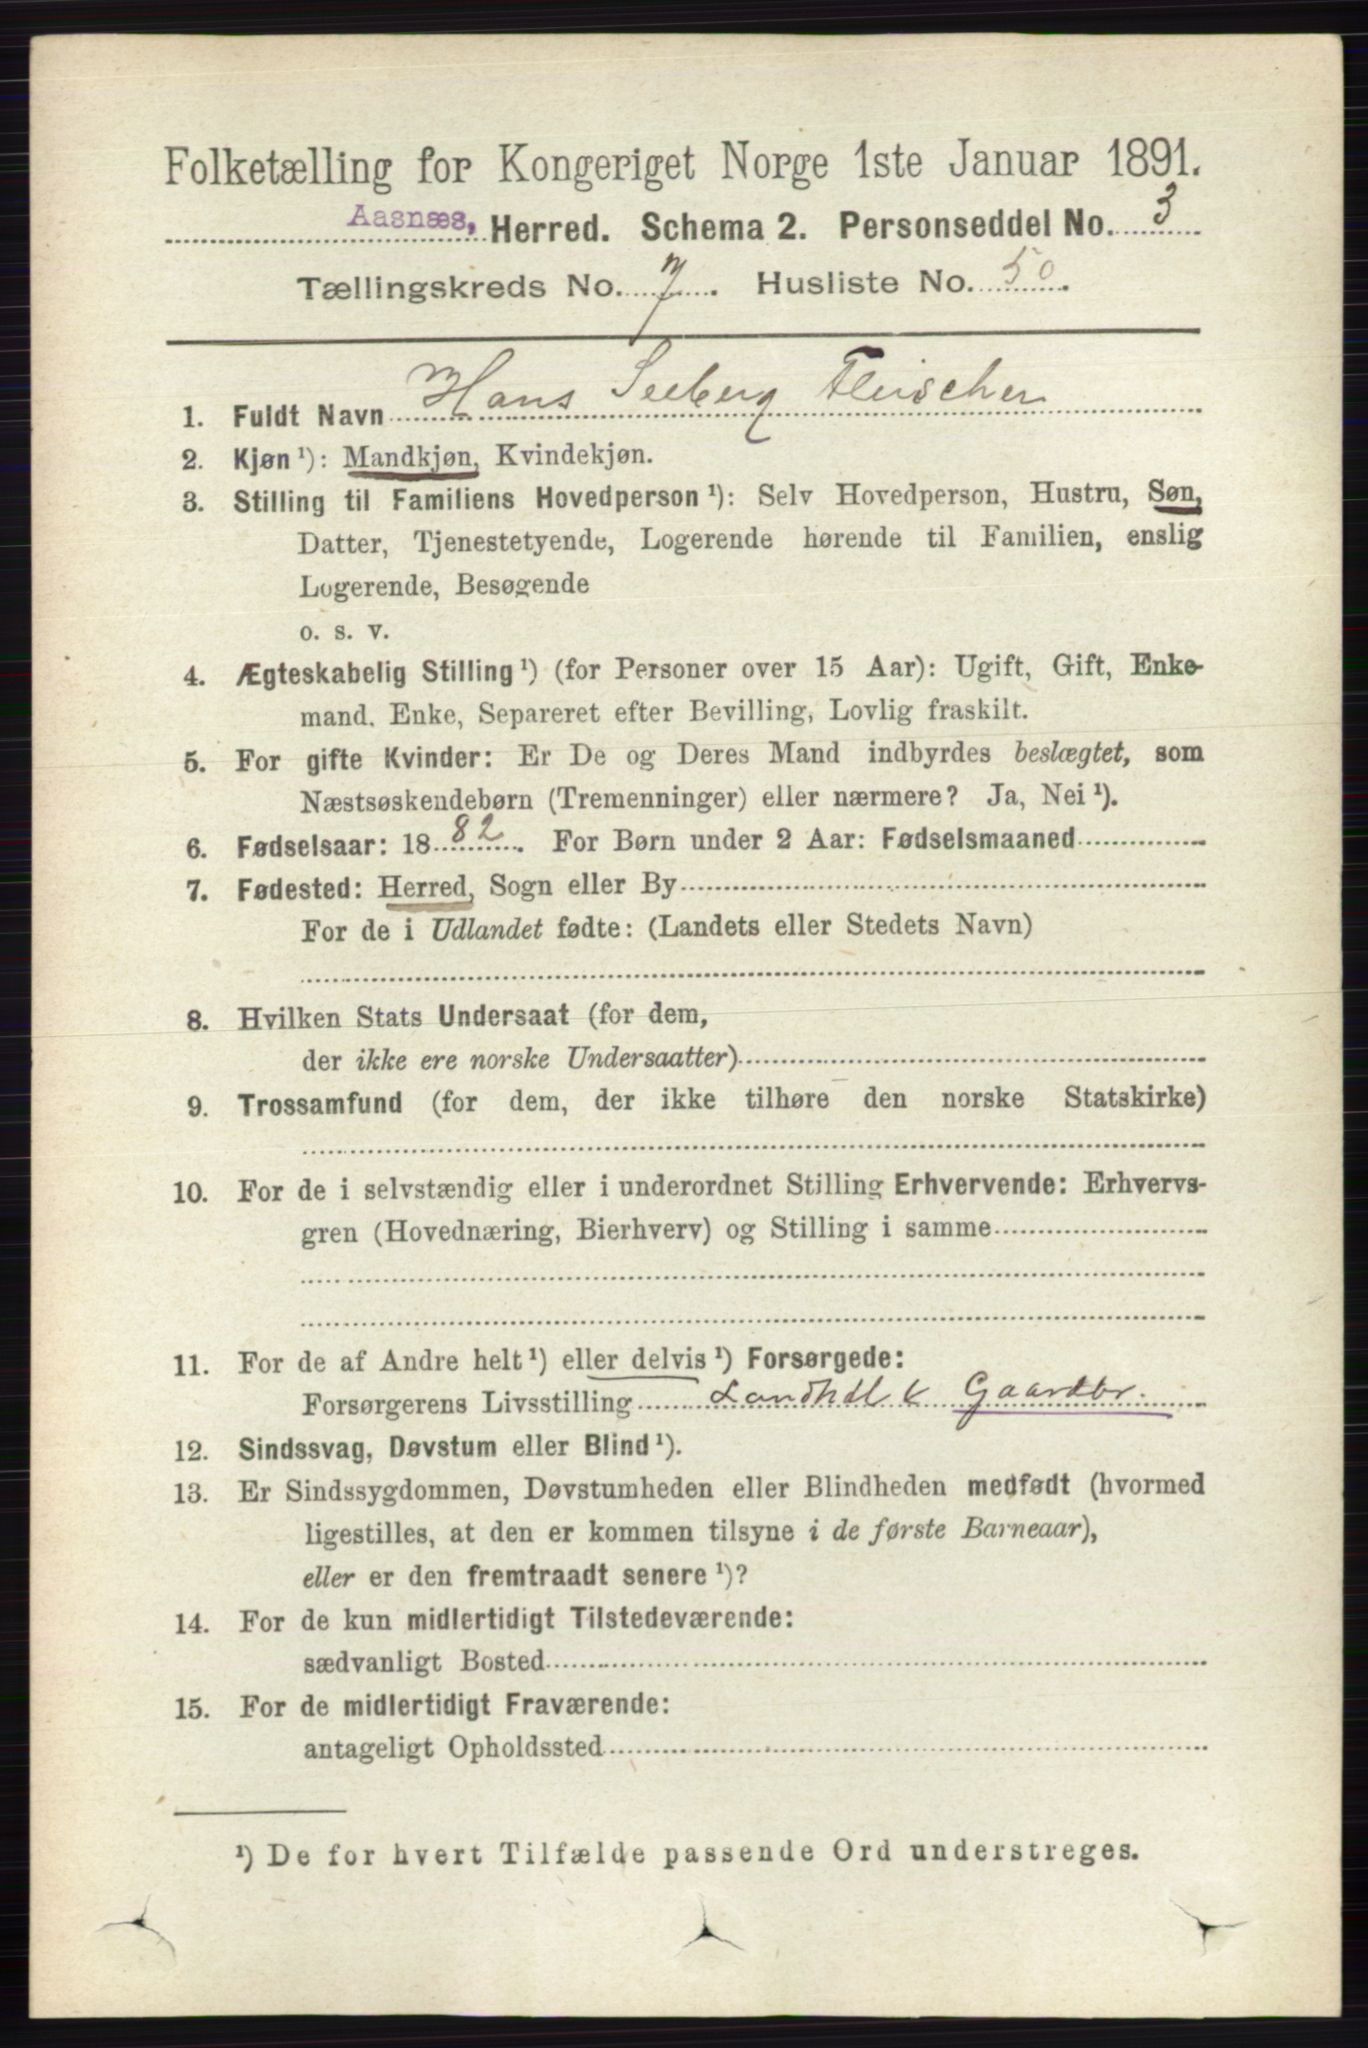 Folketælling for Kongeriget Norge 1ste Januar 1891.
Aasnæs, Herred. Schema 2. Personseddel No. 3
Tællingskreds No. 7. Husliste No. 50.
1. Fuldt Navn Hans Seeberg Fleischer
2. Kjøn ¹): Mandkjøn, Kvindekjøn.
3. Stilling til Familiens Hovedperson ¹): Selv Hovedperson, Hustru, Søn,
Datter, Tjenestetyende, Logerende hørende til Familien, enslig
Logerende, Besøgende
o. s. v.
4. Ægteskabelig Stilling ¹) (for Personer over 15 Aar): Ugift, Gift, Enke-
mand, Enke, Separeret efter Bevilling, Lovlig fraskilt.
5. For gifte Kvinder: Er De og Deres Mand indbyrdes beslægtet, som
Næstsøskendebørn (Tremenninger) eller nærmere? Ja, Nei ¹).
6. Fødselsaar: 1882. For Børn under 2 Aar: Fødselsmaaned
7. Fødested: Herred, Sogn eller By
For de i Udlandet fødte: (Landets eller Stedets Navn)
8. Hvilken Stats Undersaat (for dem,
der ikke ere norske Undersaatter)
9. Trossamfund (for dem, der ikke tilhøre den norske Statskirke)
10. For de i selvstændig eller i underordnet Stilling Erhvervende: Erhvervs-
gren (Hovednæring, Bierhverv) og Stilling i samme
11. For de af Andre helt ¹) eller delvis ¹) Forsørgede:
Forsørgerens Livsstilling Landhdl & Gaardbr.
12. Sindssvag, Døvstum eller Blind ¹).
13. Er Sindssygdommen, Døvstumheden eller Blindheden medfødt (hvormed
ligestilles, at den er kommen tilsyne i de første Barneaar),
eller er den fremtraadt senere ¹)?
14. For de kun midlertidigt Tilstedeværende:
sædvanligt Bosted
15. For de midlertidigt Fraværende:
antageligt Opholdssted
¹) De for hvert Tilfælde passende Ord understreges.